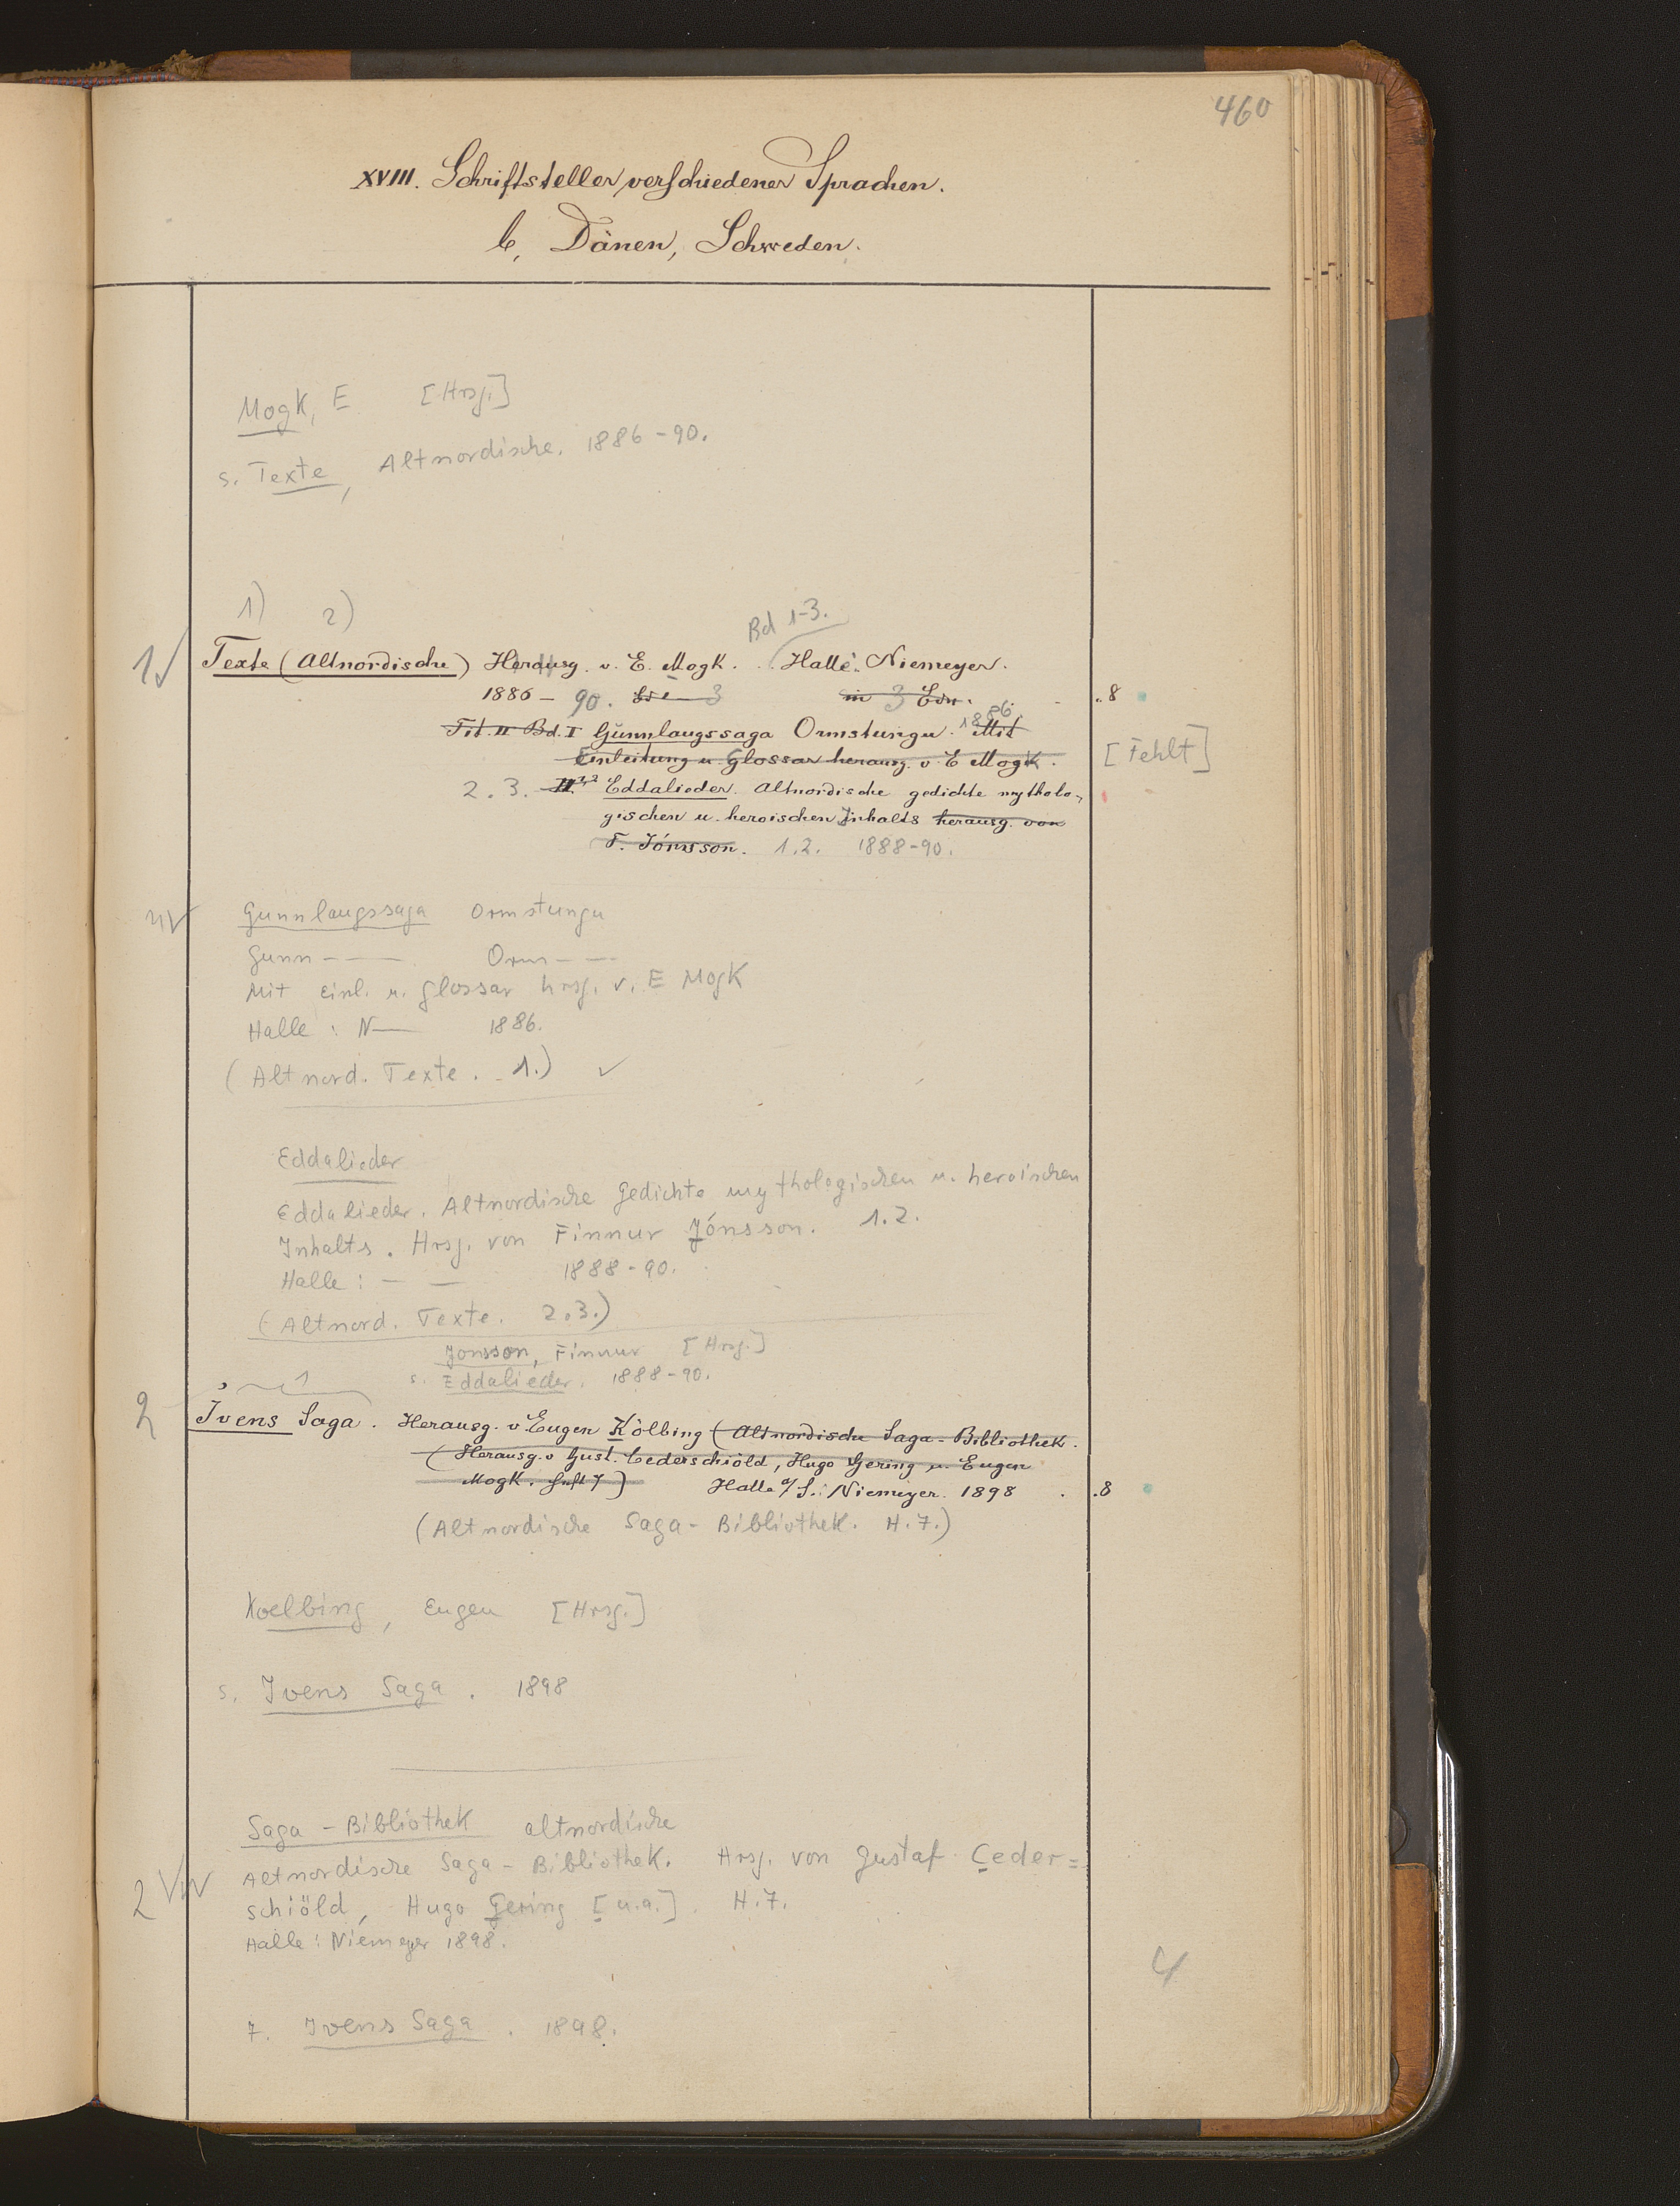 460
XVIII. Schriftsteller verschiedener Sprachen.
b, Dänen, Schweden.
Mogk, E [Hrsg.]
s. Texte, Altnordische. 1886-90.
1) 2)
Bd 1-3.
1 Texte (Altnordische) Herausg. v. E. Mogk. Halle: Niemeyer.
1886 - 90. 3 in 3 Bdn. .8
Tit. II Bd. I Gunnlaugssaga Ormstungu. 1886. Mit
Einleitung u. Glossar herausg. v. E Mogk. [Fehlt]
2. 3. II Eddalieder. Altnordische gedichte mytholo-
gischen u. heroischen Inhalts herausg. von
F. Jónsson. 1.2. 1888-90.
Gunnlaugssaga Ormstungu
Gunn--- Orm---
Mit Einl. u. Glossar hrsg. v. E Mogk
Halle: N— 1886.
(Altnord. Texte. 1.)
Eddalieder
Eddalieder. Altnordische Gedichte mythologischen u. heroischen
Inhalts. Hrsg. von Finnur Jónsson. 1.2.
Halle: — — 1888-90.
(Altnord. Texte. 2.3.)
Jonsson, Finnur [Hrsg.]
s. Eddalieder. 1888-90.
1
2 Ivens Saga. Herausg. v. Eugen Kölbing (Altnordische Saga-Bibliothek.
(Herausg. v Gust. Cederschiöld, Hugo Gering u. Eugen
Mogk. Heft 7) Halle a/S.: Niemeyer. 1898 . .8
(Altnordische Saga-Bibliothek. H. 7.)
Koelbing, Eugen [Hrsg.]
s. Ivens Saga. 1898
Saga-Bibliothek altnordische
Altnordische Saga-Bibliothek. Hrsg. von Gustaf Ceder=
2 schiöld, Hugo Gering [u.a.]. H.7.
Halle: Niemeyer 1898.
4
7. Ivens Saga. 1898.